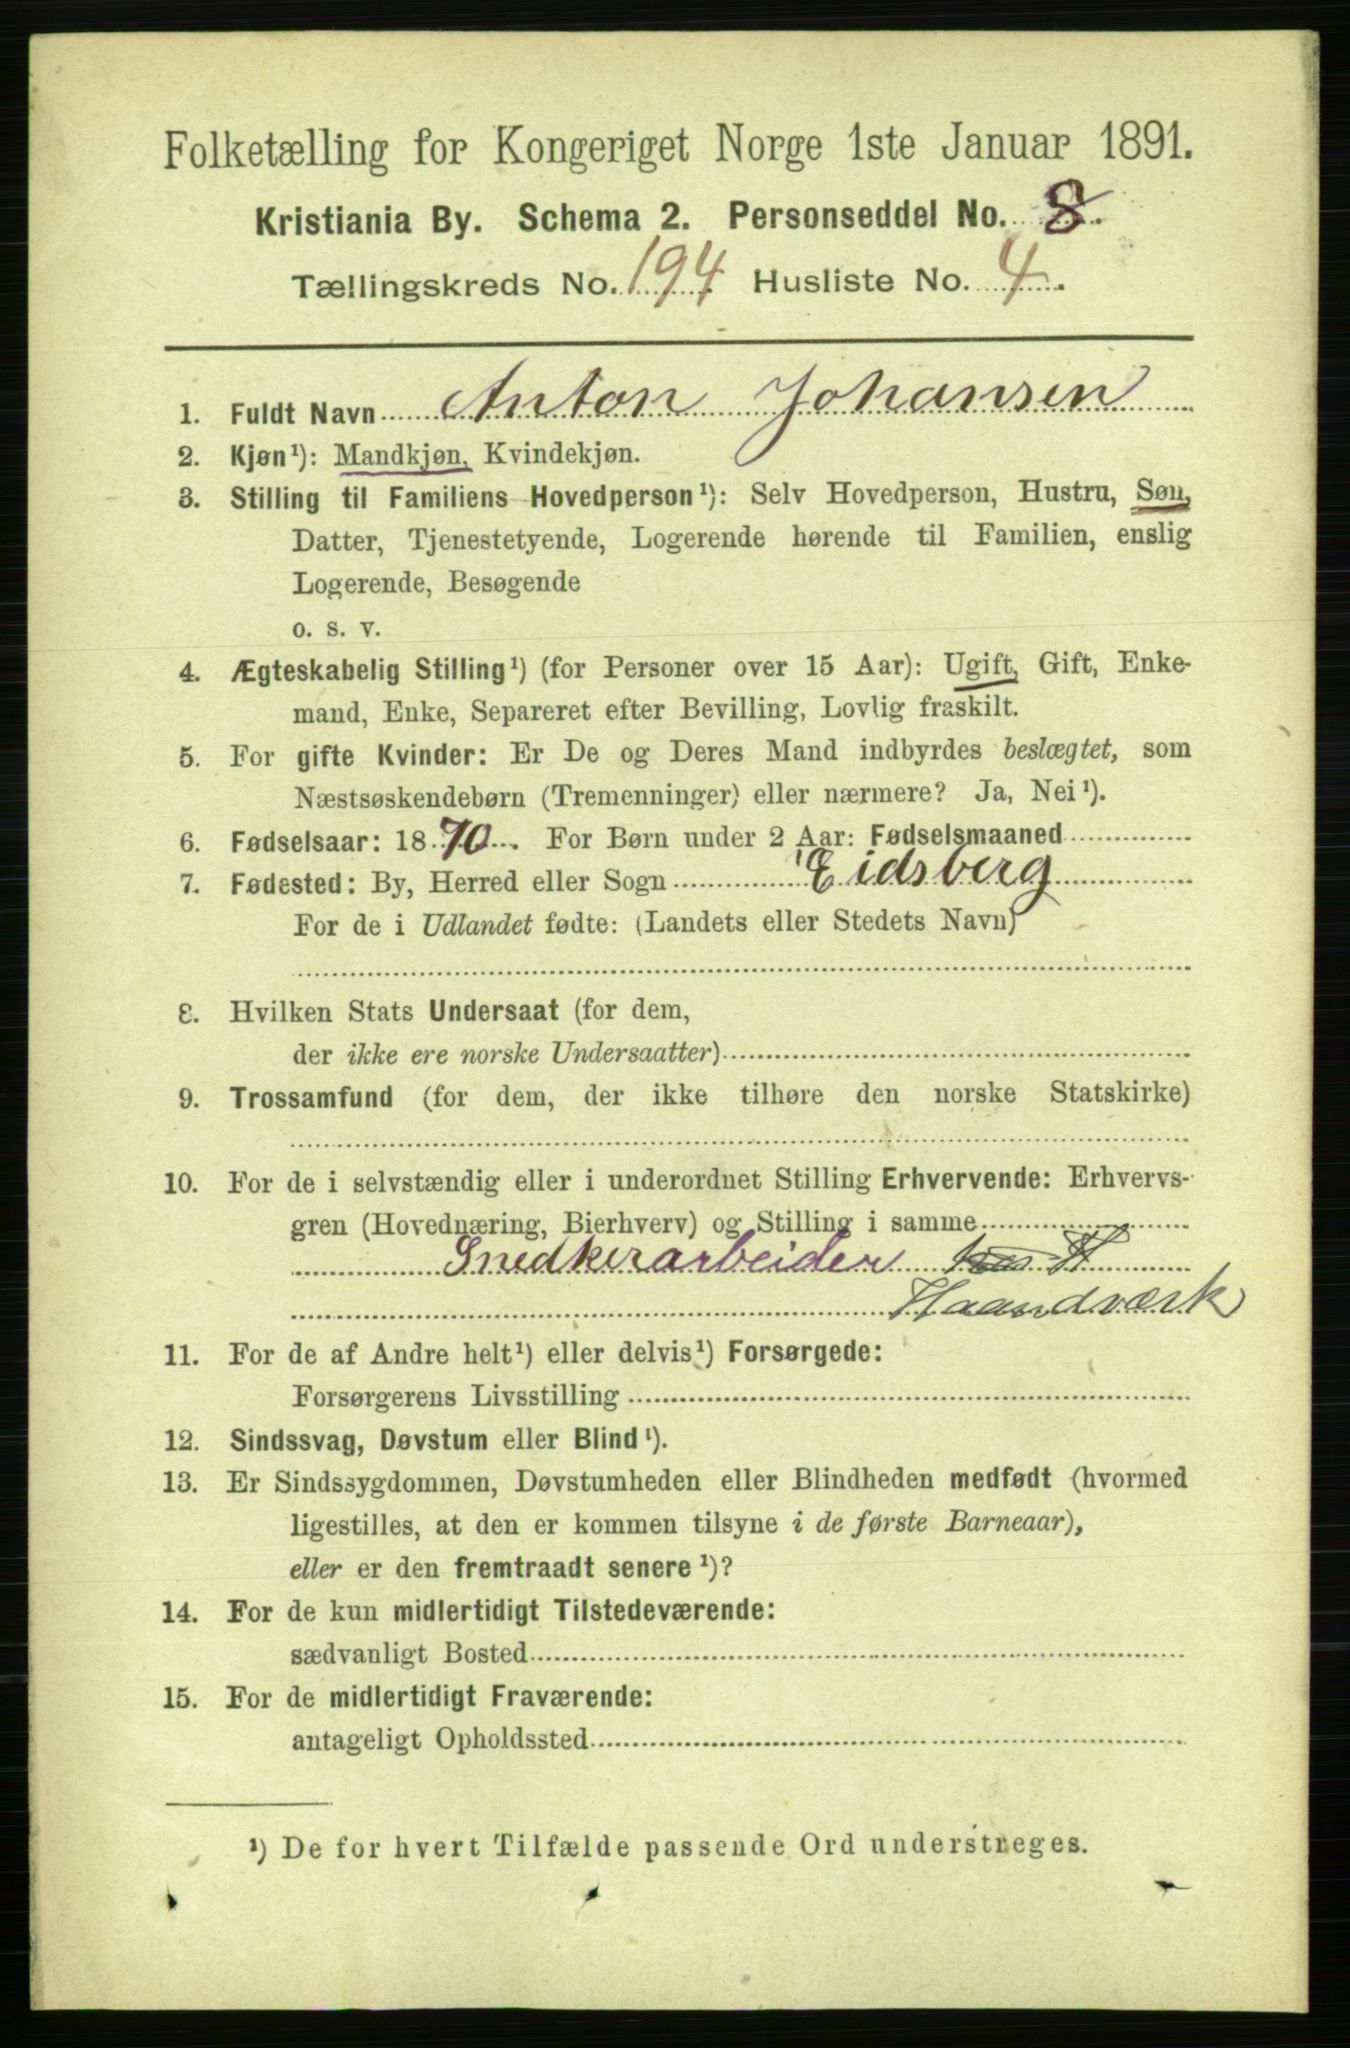 Folketælling for Kongeriget Norge 1ste Januar 1891.
Kristiania By. Schema 2. Personseddel No. 8.
Tællingskreds No. 194 Husliste No. 4.
1. Fuldt Navn Anton Johansen
2. Kjøn¹): Mandkjøn, Kvindekjøn.
3. Stilling til Familiens Hovedperson¹): Selv Hovedperson, Hustru, Søn,
Datter, Tjenestetyende, Logerende hørende til Familien, enslig
Logerende, Besøgende
o. s. v.
4. Ægteskabelig Stilling¹) (for Personer over 15 Aar): Ugift, Gift, Enke-
mand, Enke, Separeret efter Bevilling, Lovlig fraskilt.
5. For gifte Kvinder: Er De og Deres Mand indbyrdes beslægtet, som
Næstsøskendebørn (Tremenninger) eller nærmere? Ja, Nei¹).
6. Fødselsaar: 1870. For Børn under 2 Aar: Fødselsmaaned
7. Fødested: By, Herred eller Sogn Eidsberg
For de i Udlandet fødte: (Landets eller Stedets Navn)
8. Hvilken Stats Undersaat (for dem,
der ikke ere norske Undersaatter)
9. Trossamfund (for dem, der ikke tilhøre den norske Statskirke)
10. For de i selvstændig eller i underordnet Stilling Erhvervende: Erhvervs-
gren (Hovednæring, Bierhverv) og Stilling i samme
Snedkerarbeider
Haandværk
11. For de af Andre helt¹) eller delvis¹) Forsørgede:
Forsørgerens Livsstilling
12. Sindssvag, Døvstum eller Blind¹).
13. Er Sindssygdommen, Døvstumheden eller Blindheden medfødt (hvormed
ligestilles, at den er kommen tilsyne i de første Barneaar),
eller er den fremtraadt senere¹)?
14. For de kun midlertidigt Tilstedeværende:
sædvanligt Bosted
15. For de midlertidigt Fraværende:
antageligt Opholdssted
¹) De for hvert Tilfælde passende Ord understreges.